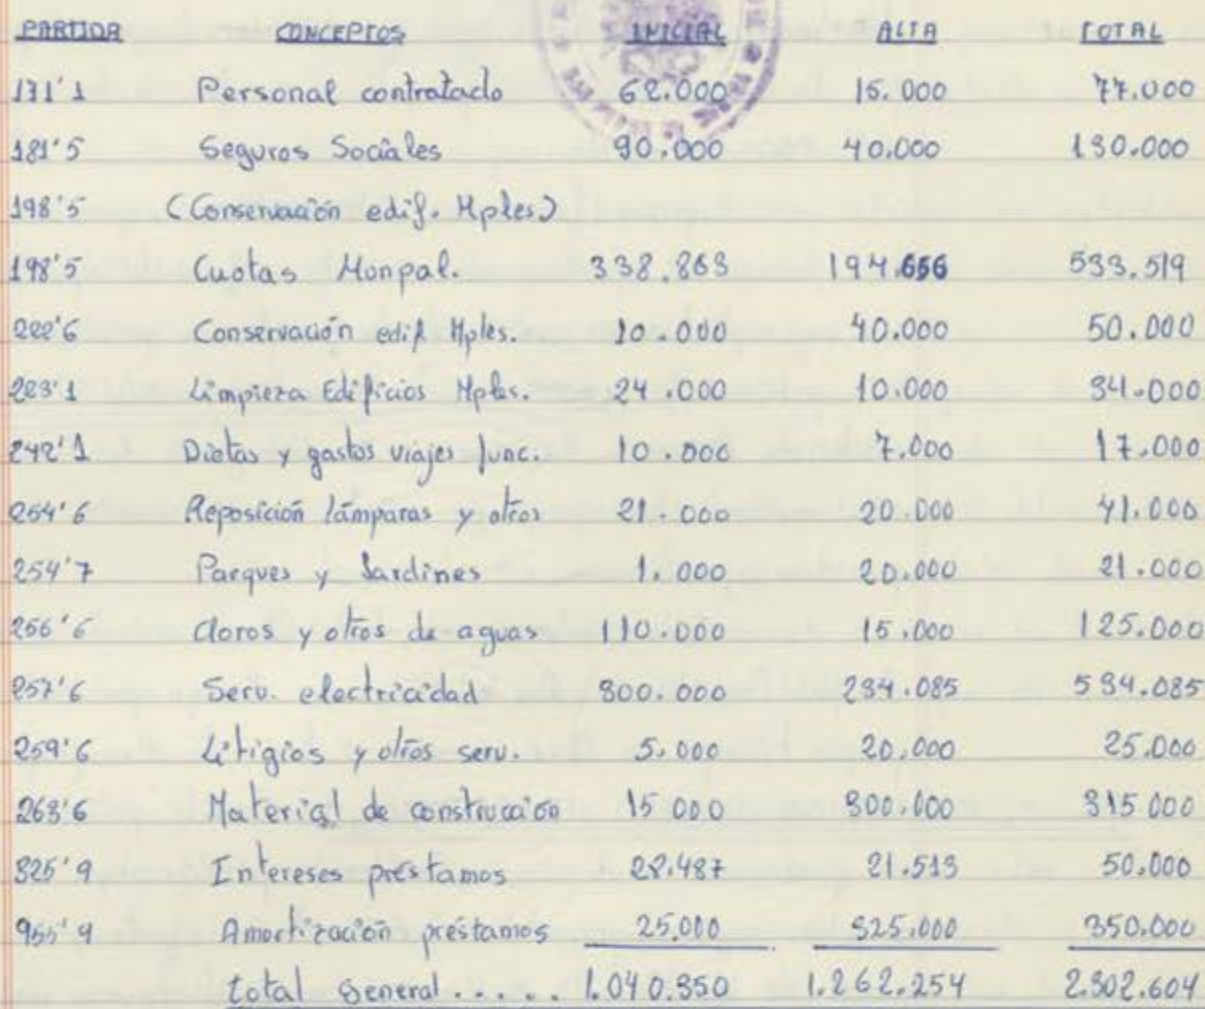 PARTIDA CONCEPTOS INICIAL ALTA TOTAL
131'1 Personal contratado 62.000 15.000 77.000
181'5 Seguros Sociales 90.000 40.000 130.000
198'5 (Conservación edif. Mples)
198'5 Cuotas Munpal. 338.863 194.656 533.519
222'6 Conservación edif. Mples. 10.000 40.000 50.000
223'1 Limpieza Edificios Mples. 24.000 10.000 34.000
242'1 Dietas y gastos viajes func. 10.000 7.000 17.000
254'6 Reposición lámparas y otros 21.000 20.000 41.000
254'7 Parques y Jardines 1.000 20.000 21.000
256'6 Cloros y otros de aguas 110.000 15.000 125.000
257'6 Serv. electricidad 300.000 234.085 534.085
259'6 Litigios y otros serv. 5.000 20.000 25.000
263'6 Material de construcción 15 000 300.000 315 000
325'9 Intereses préstamos 28.487 21.513 50.000
955'9 Amortización préstamos 25.000 325.000 350.000
total general..... 1.040.350 1.262.254 2.302.604